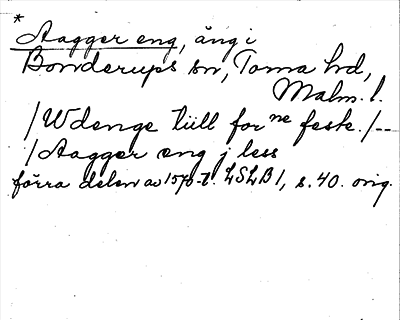 *
Aagger eng, äng i
Bonderups sn, Torna hrd,
Malm. l.
/Wdenge tüll for ne feste./--
/Aagger eng j less
förra delen av 1570-t. LSLB 1, s. 40. orig.